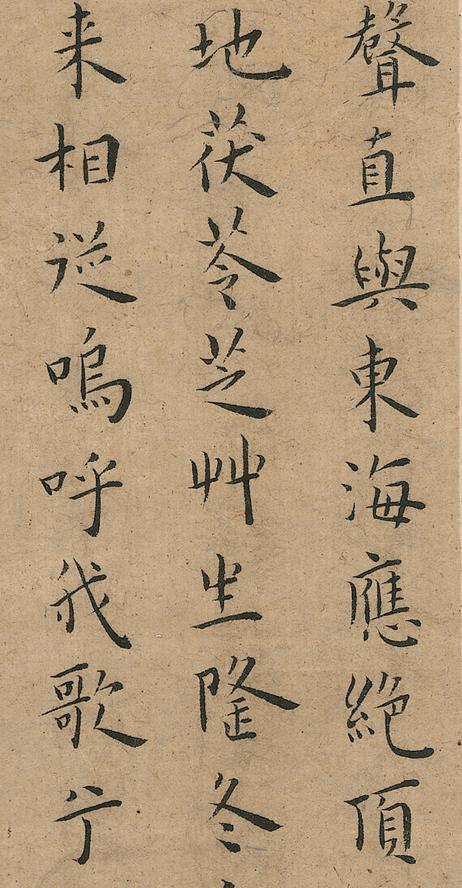 聲直與東海應絕頂
地茯苓芝艸坐隆冬
来相從嗚呼我歌兮